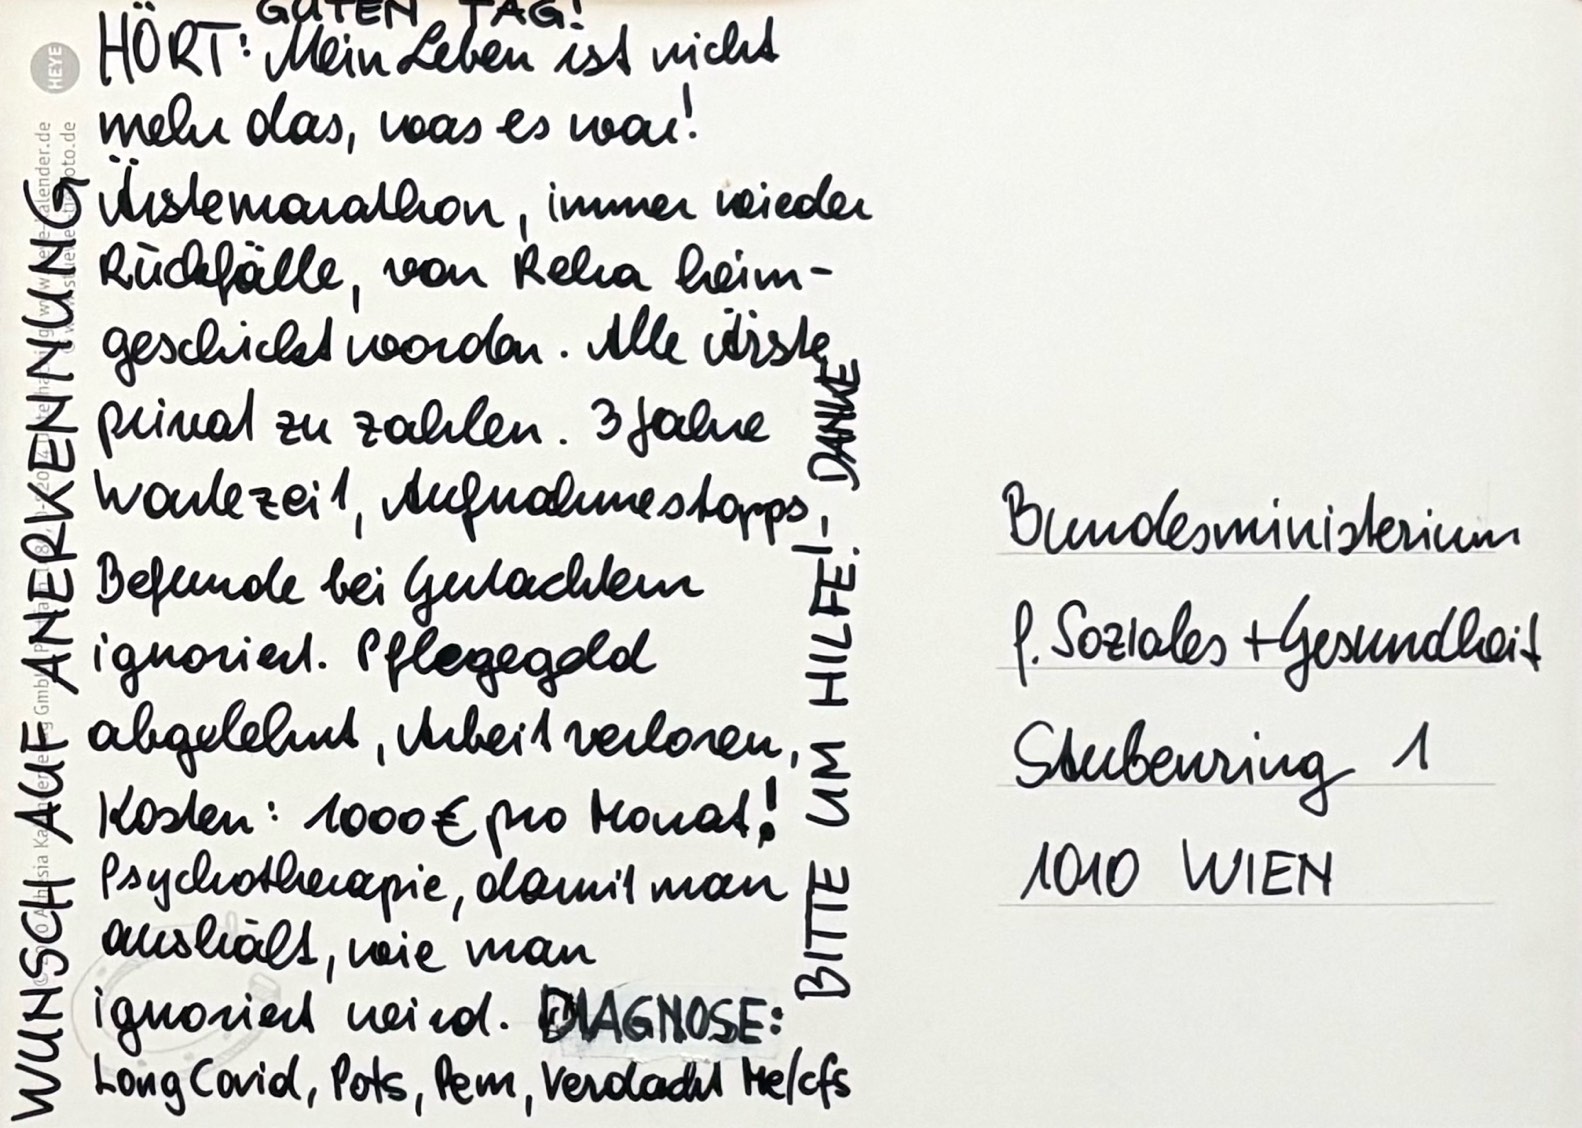 GUTEN TAG!
HÖRT: Mein Leben ist nicht
mehr das, was es war!
Ärztemarathon, immer wieder
Rückfälle, von Reha heim-
geschickt worden. Alle Ärzte
privat zu zahlen. 3 Jahre
Wartezeit, Aufnahmestopps,
Befunde bei Gutachtern
ignoriert. Pflegegeld
abgelehnt, Arbeit verloren,
Kosten: 1000€ pro Monat!
Psychotherapie, damit man
aushält, wie man
ignoriert wird. DIAGNOSE:
Long Covid, Pots, Pem, Verdacht Me/cfs
WUNSCH AUF ANERKENNUNG
BITTE UM HILFE! - DANKE
HEYE
Bundesministerium
f. Soziales + Gesundheit
Stubenring 1
1010 WIEN